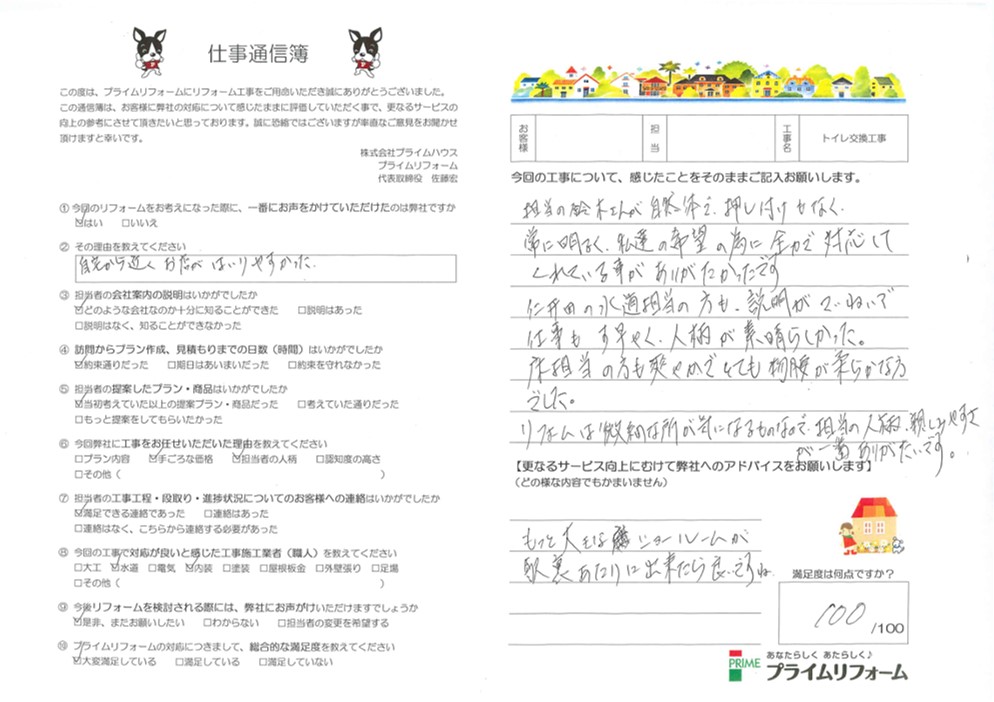 仕事通信簿
この度は、プライムリフォームにリフォーム工事をご用命いただき誠にありがとうございました。
この通信簿は、お客様に弊社の対応について感じたままに評価していただく事で、更なるサービスの
向上の参考にさせて頂きたいと思っております。誠に恐縮ではございますが率直なご意見をお聞かせ
頂けますと幸いです。
株式会社プライムハウス
プライムリフォーム
代表取締役 佐藤宏
① 今回のリフォームをお考えになった際に、一番にお声をかけていただけたのは弊社ですか
☑はい □いいえ
② その理由を教えてください
自宅から近く お店が はいりやすかった.
③ 担当者の会社案内の説明はいかがでしたか
☑どのような会社なのか十分に知ることができた □説明はあった
□説明はなく、知ることができなかった
④ 訪問からプラン作成、見積もりまでの日数（時間）はいかがでしたか
☑約束通りだった □期日はあいまいだった □約束を守れなかった
⑤ 担当者の提案したプラン・商品はいかがでしたか
☑当初考えていた以上の提案プラン・商品だった □考えていた通りだった
□もっと提案をしてもらいたかった
⑥ 今回弊社に工事をお任せいただいた理由を教えてください
□プラン内容 ☑手ごろな価格 ☑担当者の人柄 □認知度の高さ
□その他（ ）
⑦ 担当者の工事工程・段取り・進捗状況についてのお客様への連絡はいかがでしたか
☑満足できる連絡であった □連絡はあった
□連絡はなく、こちらから連絡する必要があった
⑧ 今回の工事で対応が良いと感じた工事施工業者（職人）を教えてください
□大工 ☑水道 □電気 ☑内装 □塗装 □屋根板金 □外壁張り □足場
□その他（ ）
⑨ 今後リフォームを検討される際には、弊社にお声がけいただけますでしょうか
☑是非、またお願いしたい □わからない □担当者の変更を希望する
⑩ プライムリフォームの対応につきまして、総合的な満足度を教えてください
☑大変満足している □満足している □満足していない
お客様 担当 工事名 トイレ交換工事
今回の工事について、感じたことをそのままご記入お願いします。
担当の鈴木さんが 自然体で、押し付けもなく、
常に明るく、私達の希望の為に全力で対応して
くれている事が ありがたかったです
仁井田の水道担当の方も、説明が ていねいで
仕事も す早やく、人柄が 素晴らしかった。
床担当の方も爽やかでとても物腰が柔らかな方
でした。
リフォームは 微妙な所が気になるものなので、担当の人柄、親しみやすさ
が一番ありがたいです。
【更なるサービス向上にむけて弊社へのアドバイスをお願いします】
（どの様な内容でもかまいません）
もっと 大きな ショールームが
駅裏あたりに出来たら良いですね
満足度は何点ですか？
100 /100
PRIME あなたらしく あたらしく♪
プライムリフォーム